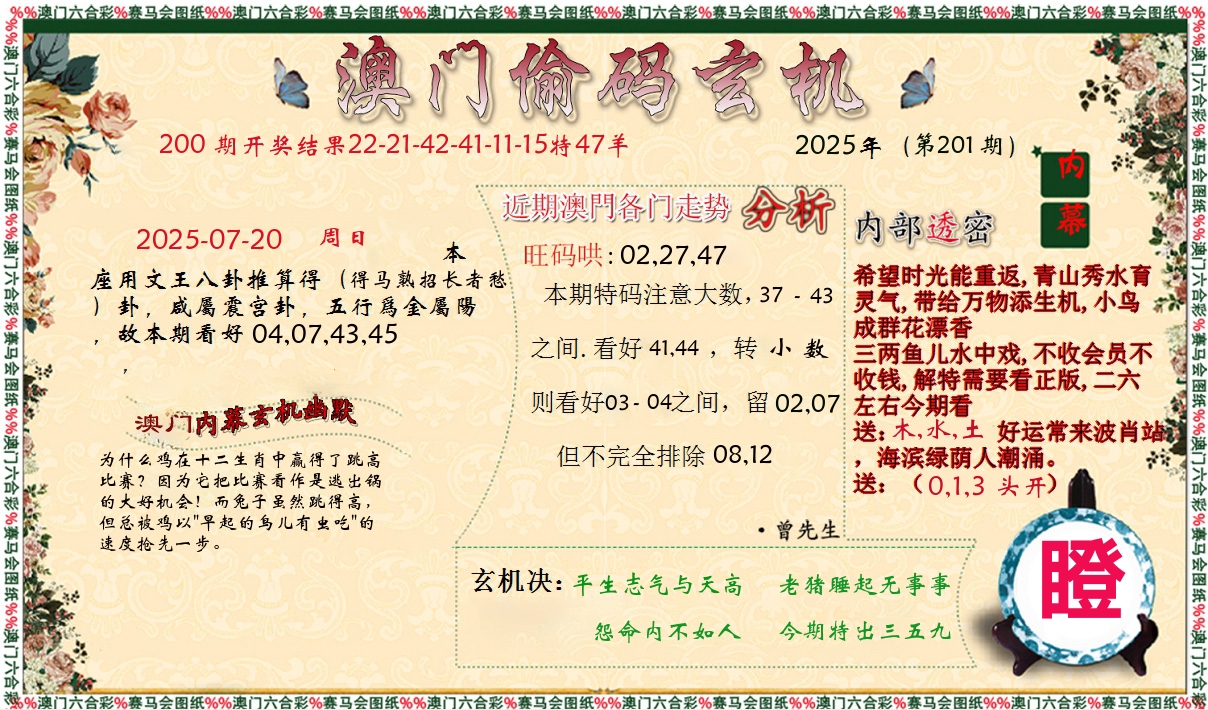 %%澳门六合彩%赛马会图纸%%澳门六合彩%赛马会图纸%%澳门六合彩%赛马会图纸%%澳门六合彩%赛马会图纸%%澳门六合彩%赛马会图纸%%澳门六合彩%赛马会图纸%%
澳门偷码玄机
200 期开奖结果22-21-42-41-11-15特47羊
2025年 (第201 期)
内
幕
2025-07-20 周日
本
座用文王八卦推算得 (得马熟招长者愁
) 卦, 咸屬震宫卦, 五行爲金屬陽
, 故本期看好 04,07,43,45
,
澳门内幕玄机幽默
为什么鸡在十二生肖中赢得了跳高
比赛? 因为它把比赛看作是逃出锅
的大好机会! 而兔子虽然跳得高,
但总被鸡以"早起的鸟儿有虫吃"的
速度抢先一步。
近期澳門各门走势 分析
旺码哄: 02,27,47
本期特码注意大数, 37 - 43
之间. 看好 41,44 , 转 小 数
则看好03 - 04之间, 留 02,07
但不完全排除 08,12
·曾先生
内部透密
希望时光能重返, 青山秀水育
灵气, 带给万物添生机, 小鸟
成群花漂香
三两鱼儿水中戏, 不收会员不
收钱, 解特需要看正版, 二六
左右今期看
送: 木, 水, 土 好运常来波肖站
, 海滨绿荫人潮涌。
送: (0,1,3 头开)
玄机决: 平生志气与天高 老猪睡起无事事
怨命内不如人 今期特出三五九
瞪
%%澳门六合彩%赛马会图纸%%澳门六合彩%赛马会图纸%%澳门六合彩%赛马会图纸%%澳门六合彩%赛马会图纸%%澳门六合彩%赛马会图纸%%澳门六合彩%赛马会图纸%%